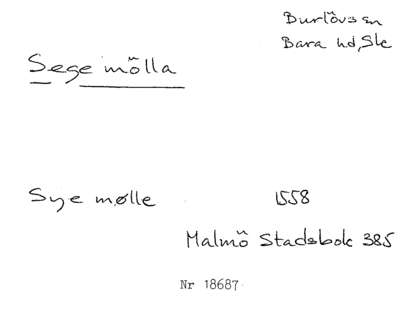 Burlövs sn
Bara hd, Sk
Sege mölla
Sye mølle 1558
Malmö Stadsbok 385
Nr 18687